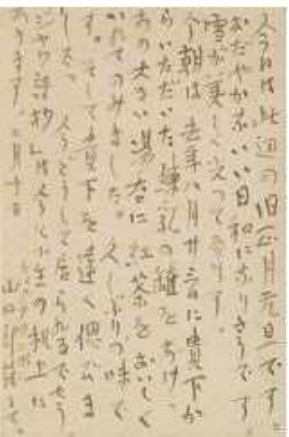 今日は此辺の旧正月元旦です。
おだやかないい日和になりさうです
雪が美しく光つて居ります。
今朝は去年八月廿三日に貴下か
らいただいた煉乳の罐をあけ、
あの大きい湯呑に紅茶をおいしく
いれてのみました。久しぶりの味で
す。そして貴下を遠く偲びま
今どうして居られるでせう
ジヤワ詩抄」は今小生の机上に
あります。二月十日
山口郊外